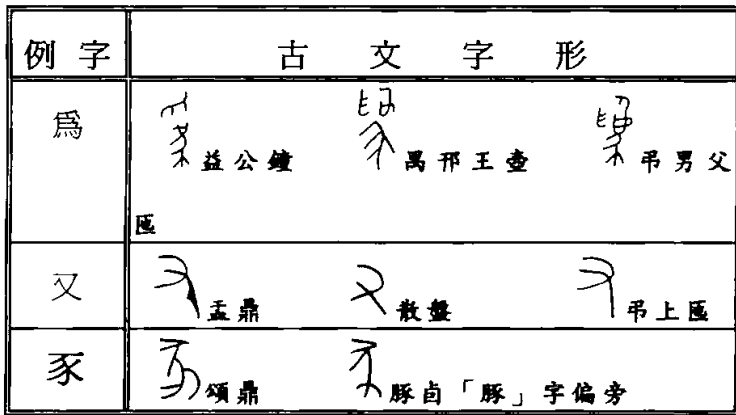 例字 古文字形
爲 益公鐘 禺邗王壺 弔男父
匜
又 盂鼎 散盤 弔上匜
豕 頌鼎 豚卣「豚」字偏旁